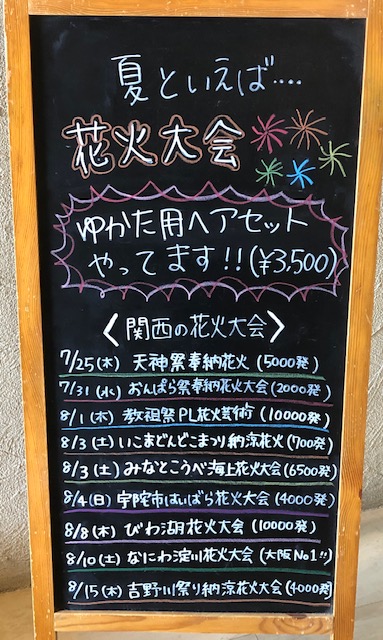 夏といえば....
花火大会
ゆかた用ヘアセット
やってます!!(¥3,500)
〈関西の花火大会〉
7/25(木) 天神祭奉納花火 (5000発)
7/31(水) おんぱら祭奉納花火大会(2000発)
8/1(木) 教祖祭PL花火芸術 (10000発)
8/3(土) いこまどんどこまつり納涼花火(700発)
8/3(土) みなとこうべ海上花火大会(6500発)
8/4(日) 宇陀市はいばら花火大会 (4000発)
8/8(木) びわ湖花火大会 (10000発)
8/10(土) なにわ淀川花火大会 (大阪No1!!)
8/15(木) 吉野川祭り納涼花火大会(4000発)